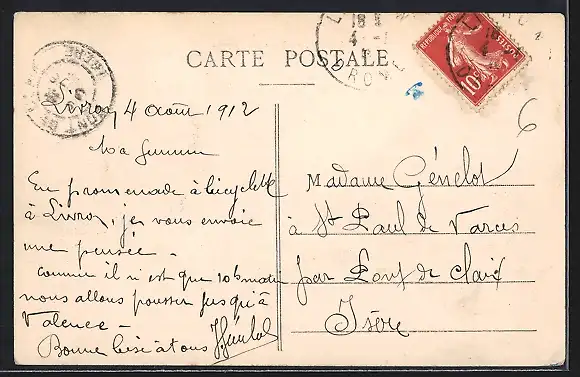 CARTE POSTALE
REPUBLIQUE FRANÇAISE
POSTES
10c
DROME
ISERE
PONT DE
Livron 4 Août 1912
Ma
En promenade à bicyclette
à Livron, je vous envoie
une pensée -
comme il n'est que 10h matin
nous allons pousser jusqu'à
Valence -
Bonne bise à tous
Madame Génelot
à St Paul de Varces
par Pont de Claix
Isère
6